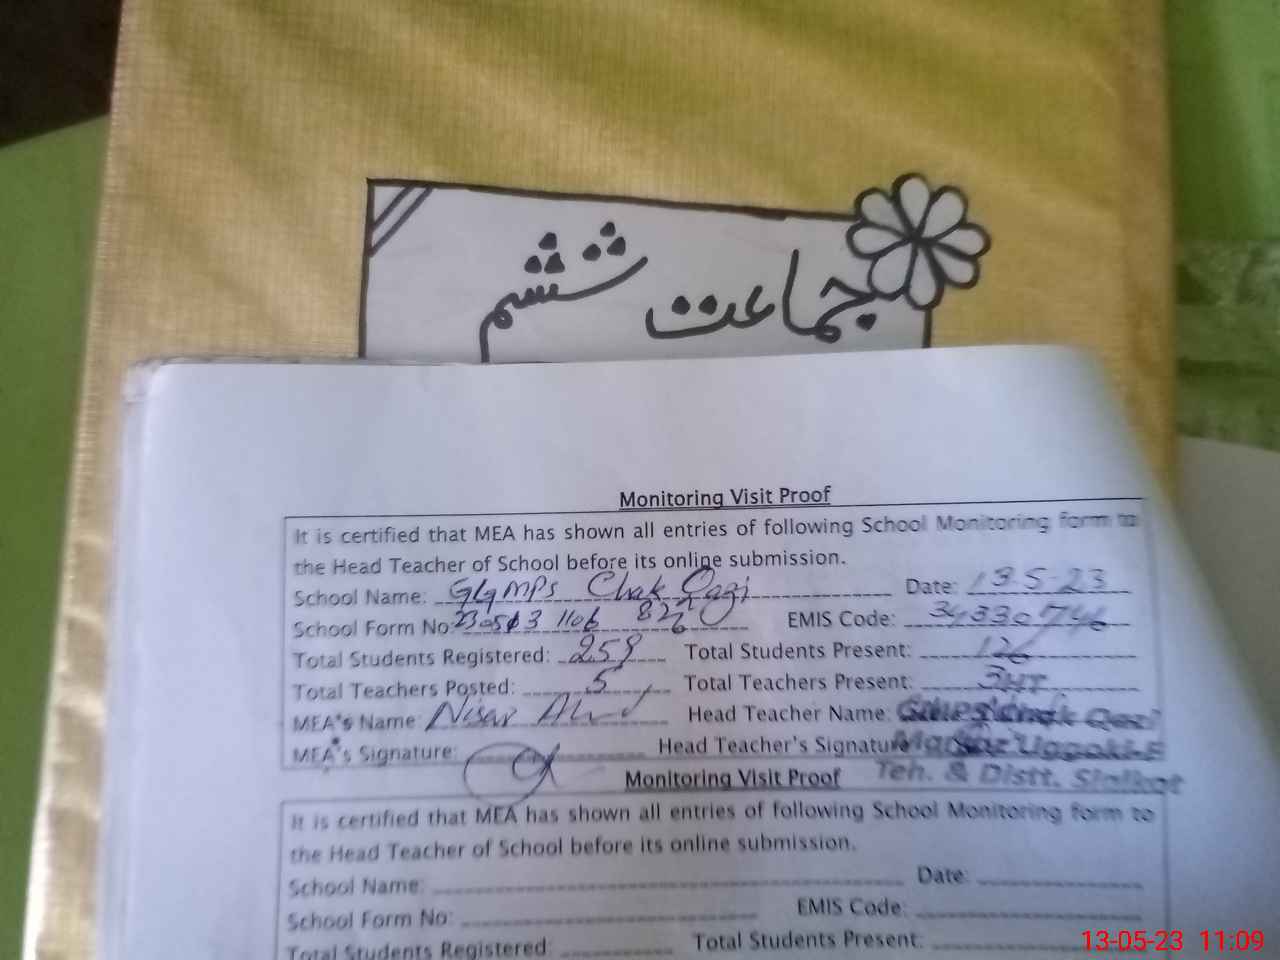 جماعت ششم
Monitoring Visit Proof
It is certified that MEA has shown all entries of following School Monitoring form to
the Head Teacher of School before its online submission.
School Name: GGMPS Chak Qazi Date: 13-5-23
School Form No: EMIS Code: 34330746
Total Students Registered: 259 Total Students Present: 126
Total Teachers Posted: 5 Total Teachers Present:
MEA's Name: Nisar Head Teacher Name: Chak Qazi
MEA's Signature: Head Teacher's Signature
Monitoring Visit Proof Teh. & Distt. Sialkot
It is certified that MEA has shown all entries of following School Monitoring form to
the Head Teacher of School before its online submission.
School Name: Date:
School Form No: EMIS Code:
Total Students Registered: Total Students Present:
13-05-23 11:09